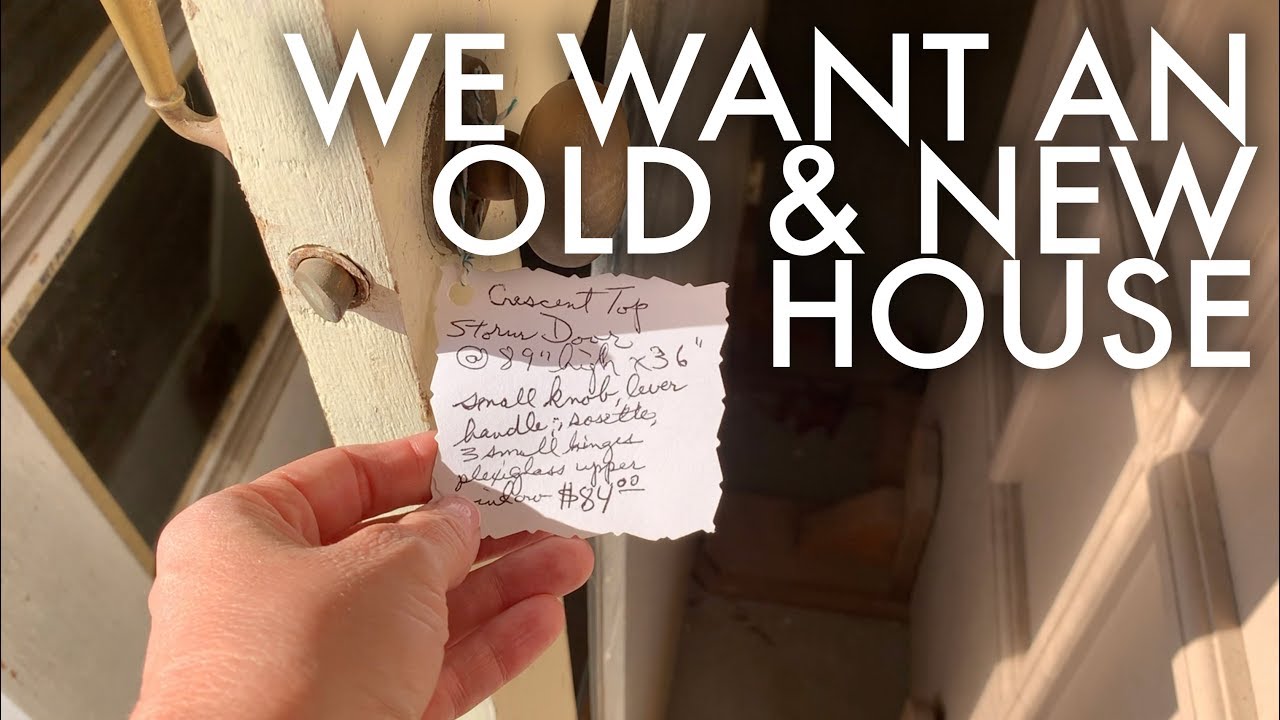 WE WANT AN
OLD & NEW
HOUSE
Crescent Top
Storm Door
@ 89" high x 36"
small knob, lever
handle, rosette,
3 small hinges
plexiglass upper
$84.00